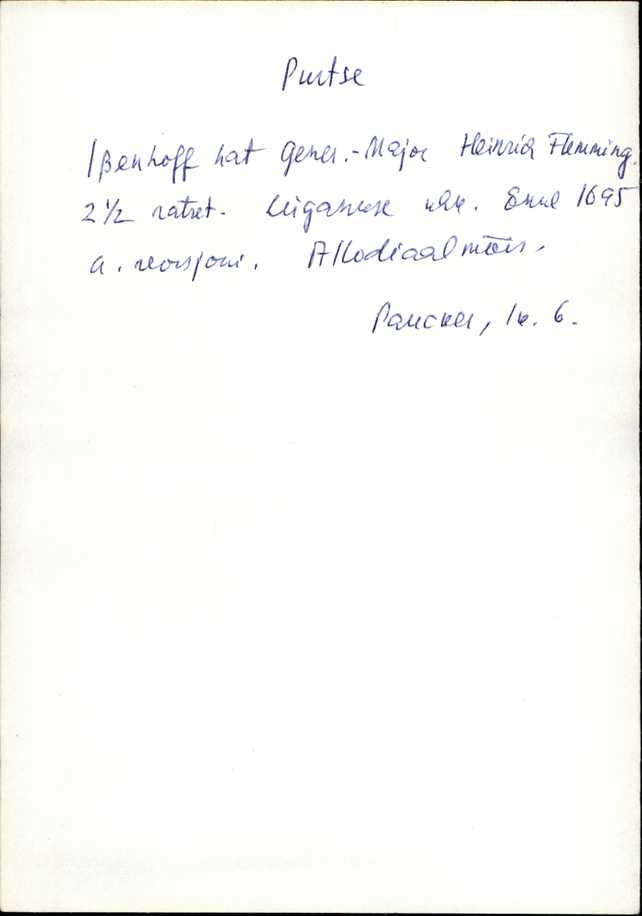 Purtse
Ißenhoff hat Gener.-Major Heinrich Flemming.
2 1/2 ratset. Lüganuse khk. Enne 1695
a. revisjoni. Allodiaalmõis.
Paucker, lk. 6.